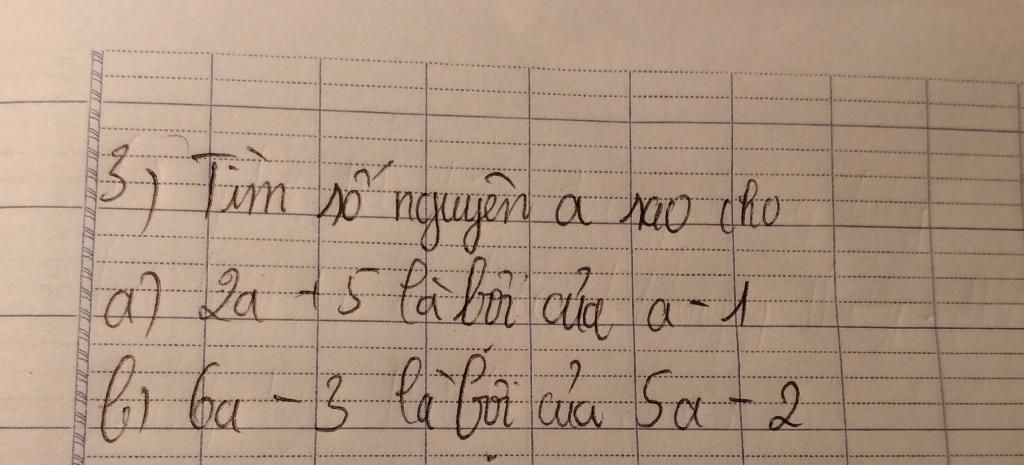 3) Tìm số nguyên a sao cho
a) 2a + 5 là bội của a - 1
b) 6a - 3 là bội của 5a - 2